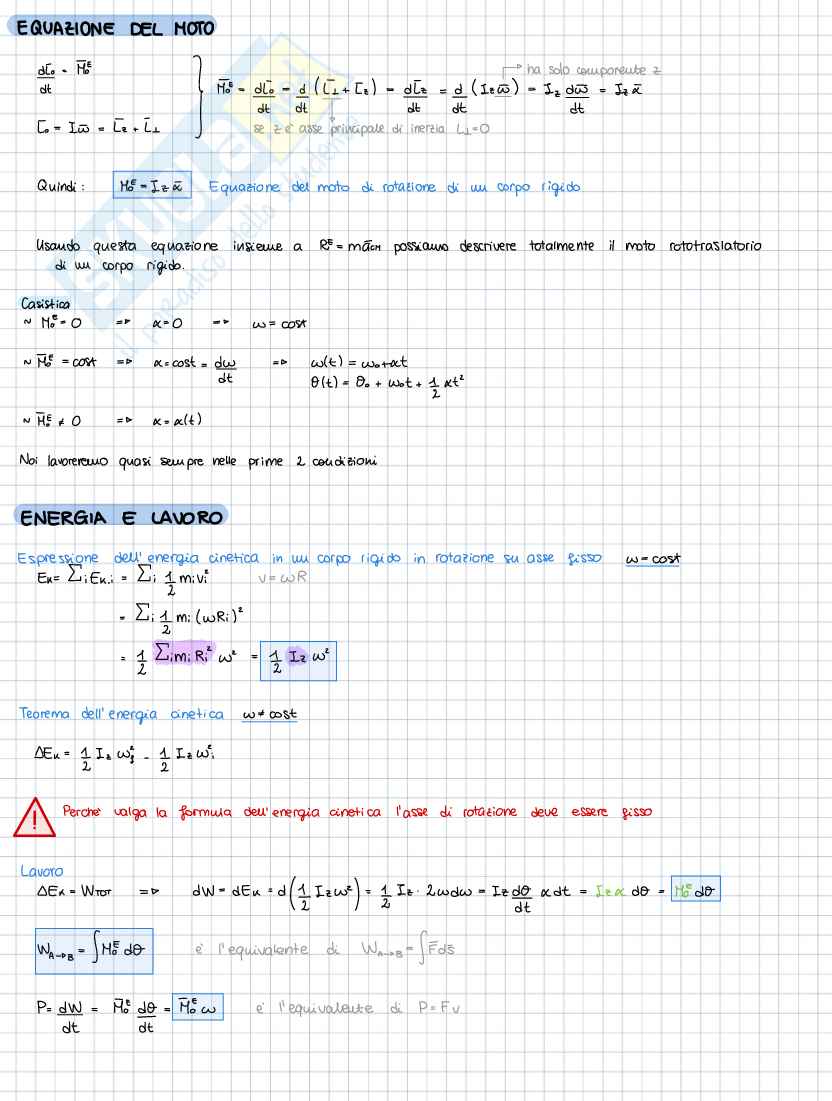 EQUAZIONE DEL MOTO
dL̄₀/dt = M̄₀ᴱ
L̄₀ = Iω̄ = L̄z + L̄⊥
M̄₀ᴱ = dL̄₀/dt = d/dt (L̄⊥ + L̄z) = dL̄z/dt = d/dt (Izω̄) = Iz dω̄/dt = Iz ᾱ
ha solo componente z
se z è asse principale di inerzia L⊥=0
Quindi: M₀ᴱ = Iz ᾱ Equazione del moto di rotazione di un corpo rigido
Usando questa equazione insieme a Rᴱ = māCM possiamo descrivere totalmente il moto rototraslatorio
di un corpo rigido.
Casistica
~ M̄₀ᴱ = 0 => α = 0 => ω = cost
~ M̄₀ᴱ = cost => α = cost = dω/dt => ω(t) = ω₀ + αt
θ(t) = θ₀ + ω₀t + 1/2 αt²
~ M̄₀ᴱ ≠ 0 => α = α(t)
Noi lavoreremo quasi sempre nelle prime 2 condizioni
ENERGIA E LAVORO
Espressione dell'energia cinetica in un corpo rigido in rotazione su asse fisso ω = cost
Eᴋ = Σi Eᴋ,i = Σi 1/2 mivi² v = ωR
= Σi 1/2 mi (ωRi)²
= 1/2 Σi mi Ri² ω² = 1/2 Iz ω²
Teorema dell'energia cinetica ω ≠ cost
ΔEᴋ = 1/2 Iz ωf² - 1/2 Iz ωi²
! Perchè valga la formula dell'energia cinetica l'asse di rotazione deve essere fisso
Lavoro
ΔEᴋ = WTOT => dW = dEᴋ = d(1/2 Izω²) = 1/2 Iz · 2ωdω = Iz dθ/dt α dt = Izα dθ = M₀ᴱ dθ
WA→B = ∫M₀ᴱ dθ è l'equivalente di WA→B = ∫F̄ds̄
P = dW/dt = M̄₀ᴱ dθ/dt = M̄₀ᴱ ω è l'equivalente di P = Fv
SKUOLA.net
il paradiso dello studente